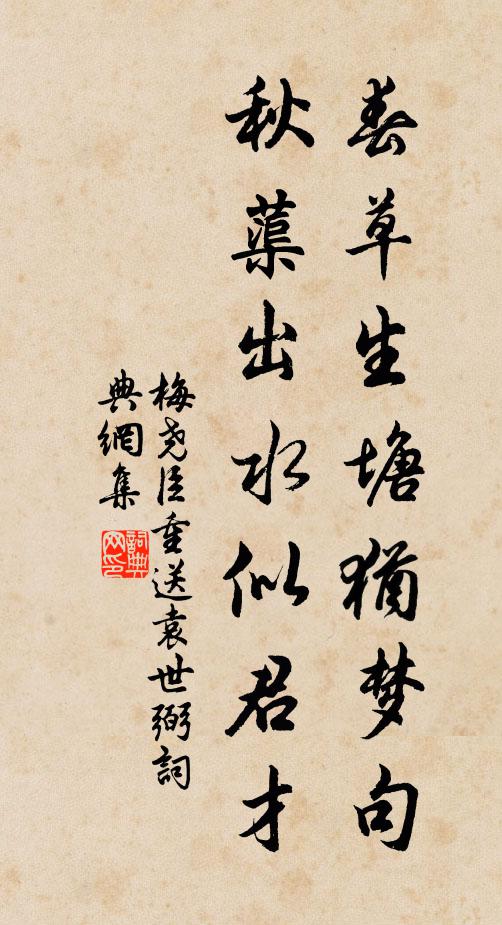 春草生塘犹梦句
秋蕖出水似君才
梅尧臣重送袁世弼詞
典網集
詞典网印